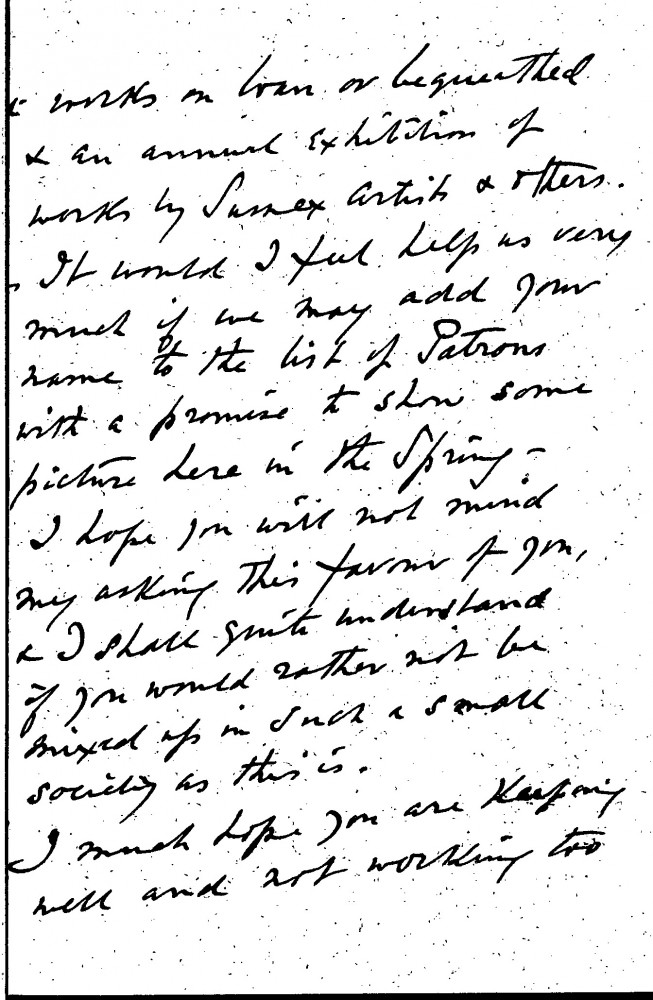 & works on loan or bequeathed
& an annual exhibition of
works by Sussex artists & others.
It would I feel help us very
much if we may add your
name to the list of Patrons
with a promise to show some
picture here in the Spring –
I hope you will not mind
my asking this favour of you,
& I shall quite understand
if you would rather not be
mixed up in such a small
society as this is.
I much hope you are keeping
well and not working too